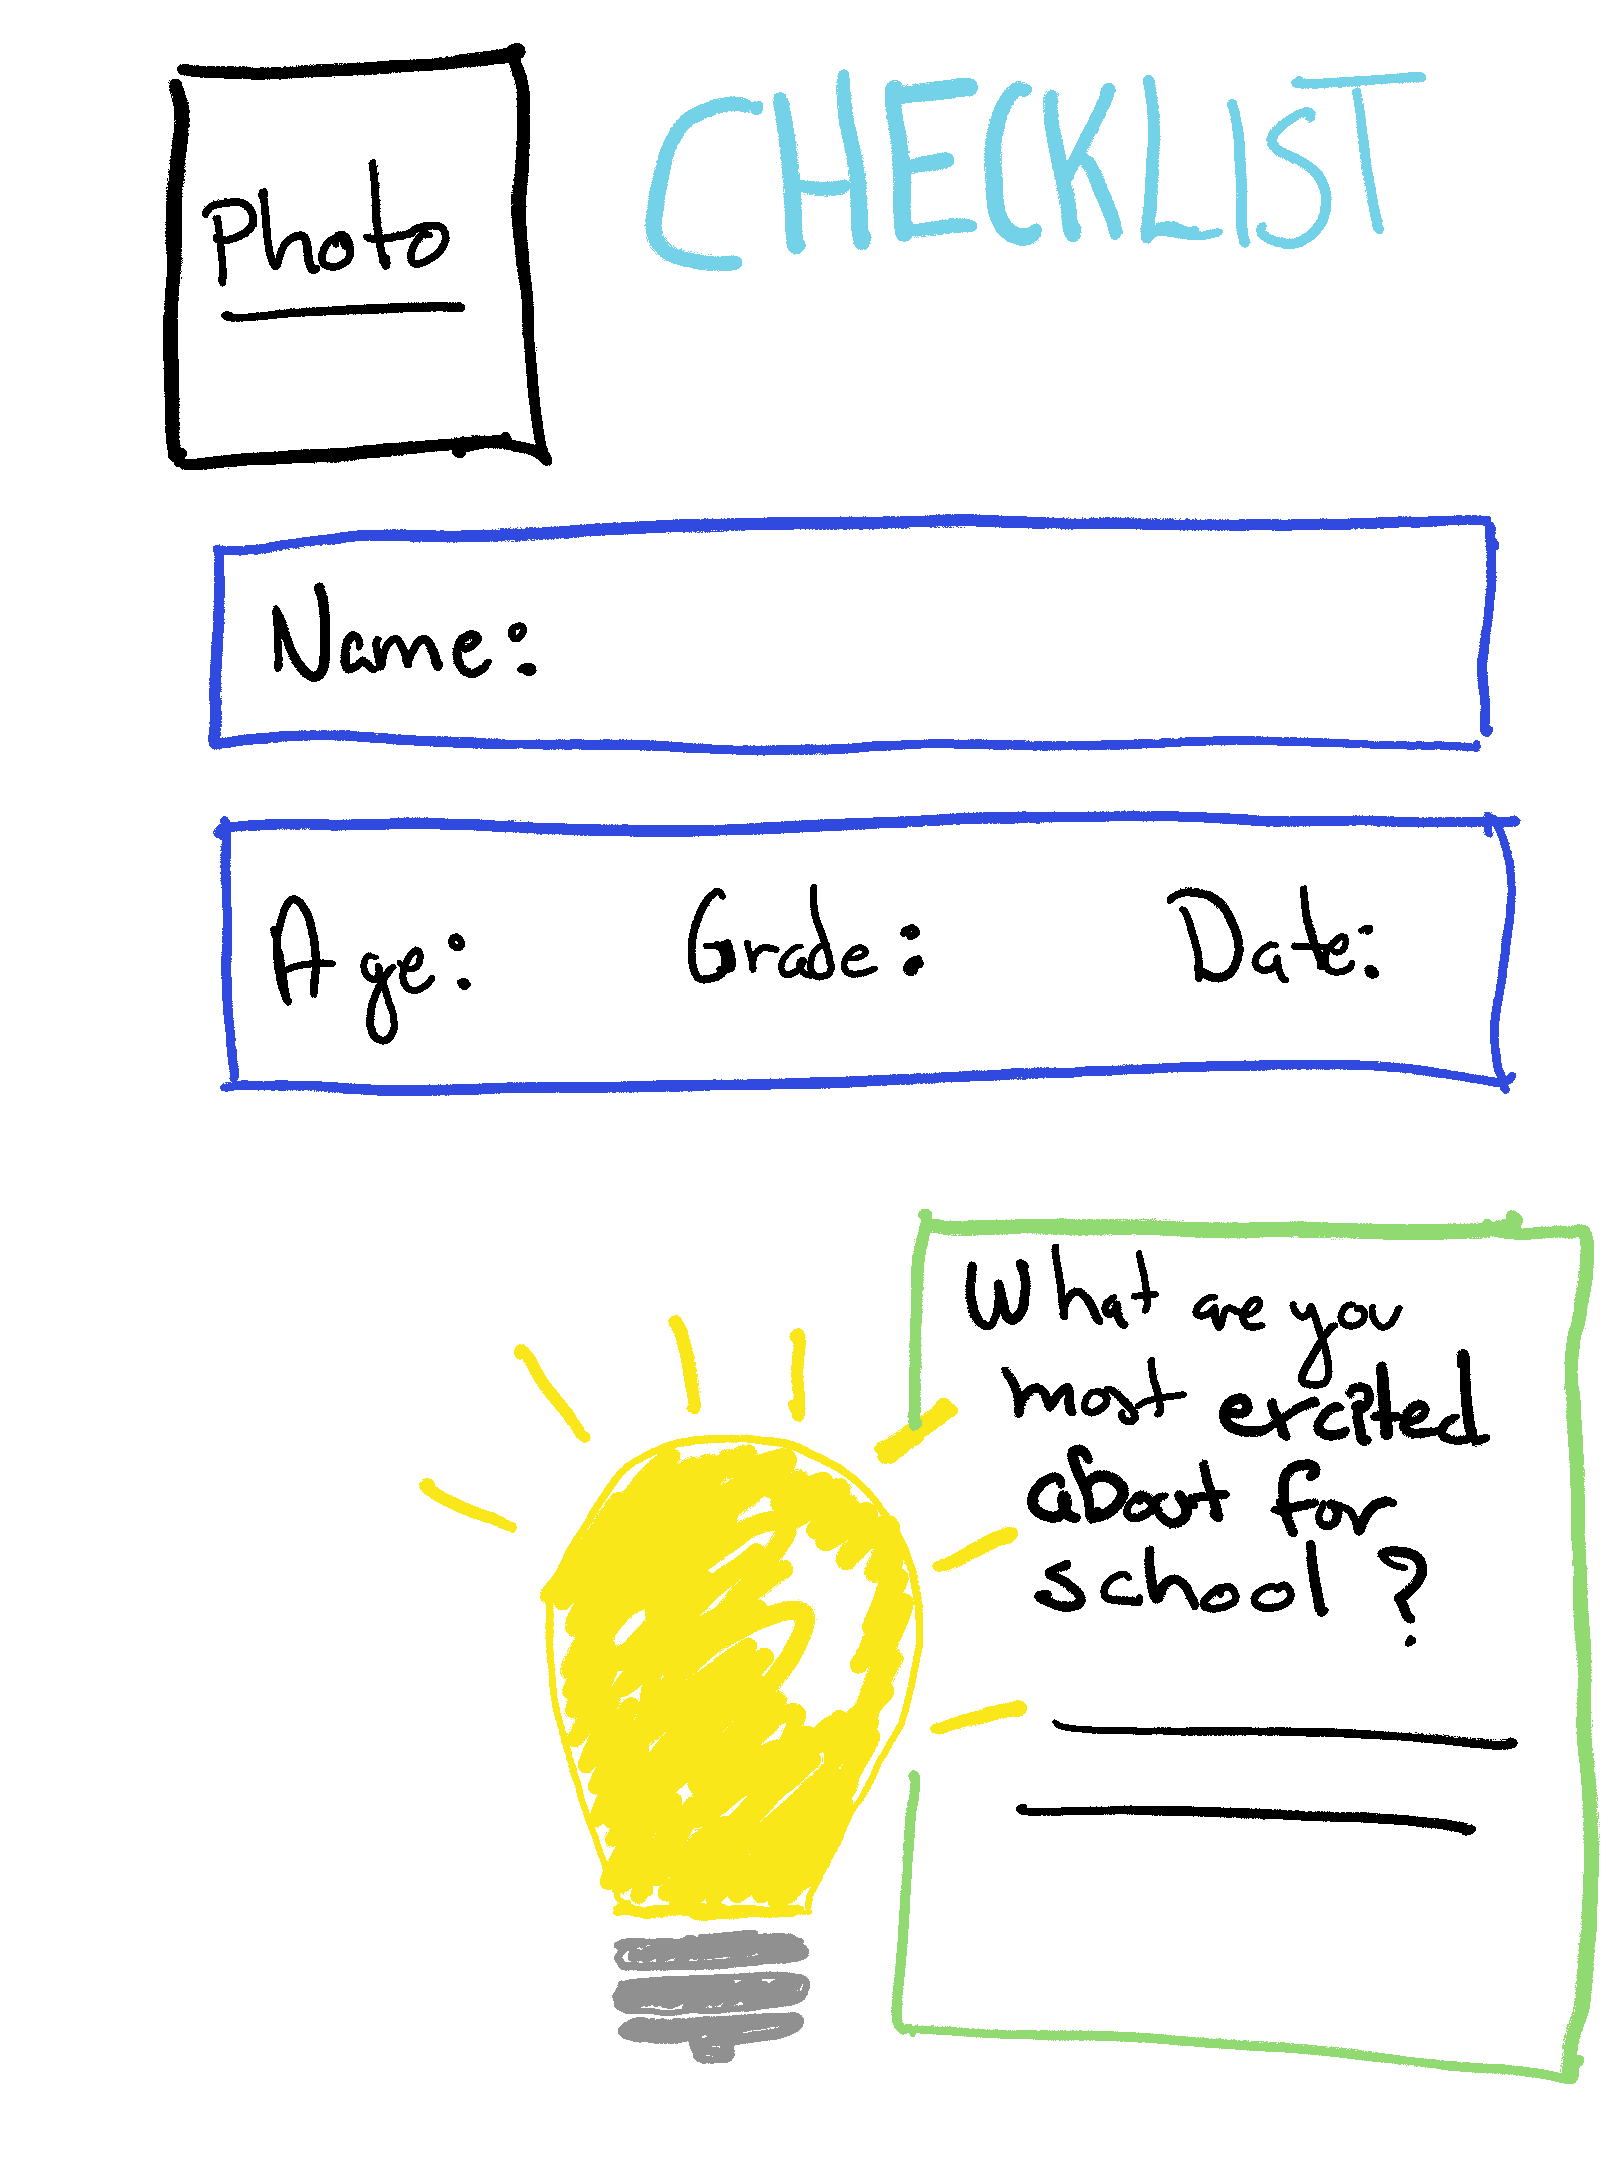 Photo
CHECKLIST
Name:
Age: Grade: Date:
What are you
most excited
about for
school?